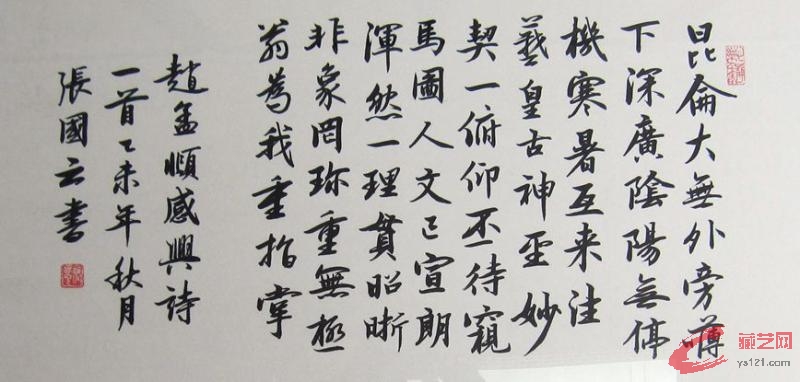 昆侖大無外旁礴
下深廣陰陽無停
機寒暑互来往
羲皇古神聖妙
契一俯仰不待窺
馬圖人文已宣朗
渾然一理貫昭晰
非象罔珍重無極
翁為我重指掌
趙孟頫感興詩
一首乙未年秋月
張國云書
藏艺网
ys121.com